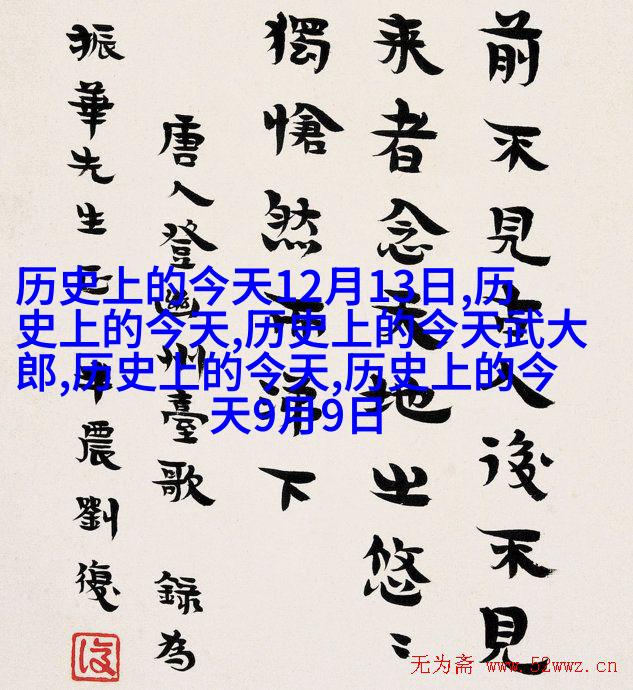 前不見古人後不見
来者念天地之悠〻
獨愴然而涕下
唐人登幽州臺歌 錄為
振華先生正 半農劉復
复
历史上的今天12月13日,历
史上的今天,历史上的今天武大
郎,历史上的今天,历史上的今
天9月9日
无为斋 www.52wwz.cn